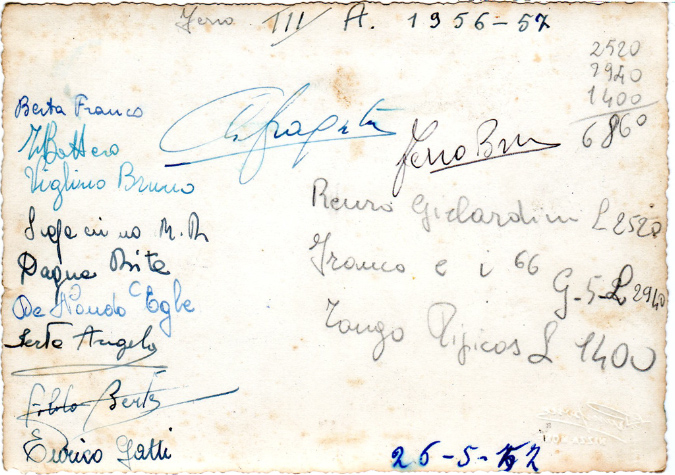 III A. 1956-57
2520
2940
1400
6860
Berta Franco
Bottero
Viglino Bruno
M. R.
Dagna Rita
De Nando Egle
Berta Angelo
Berta
Enrico Gatti
Renzo Gilardini L 2520
Franco e i 66
G-5-L 2940
Tango Tipicos L 1400
26-5-57